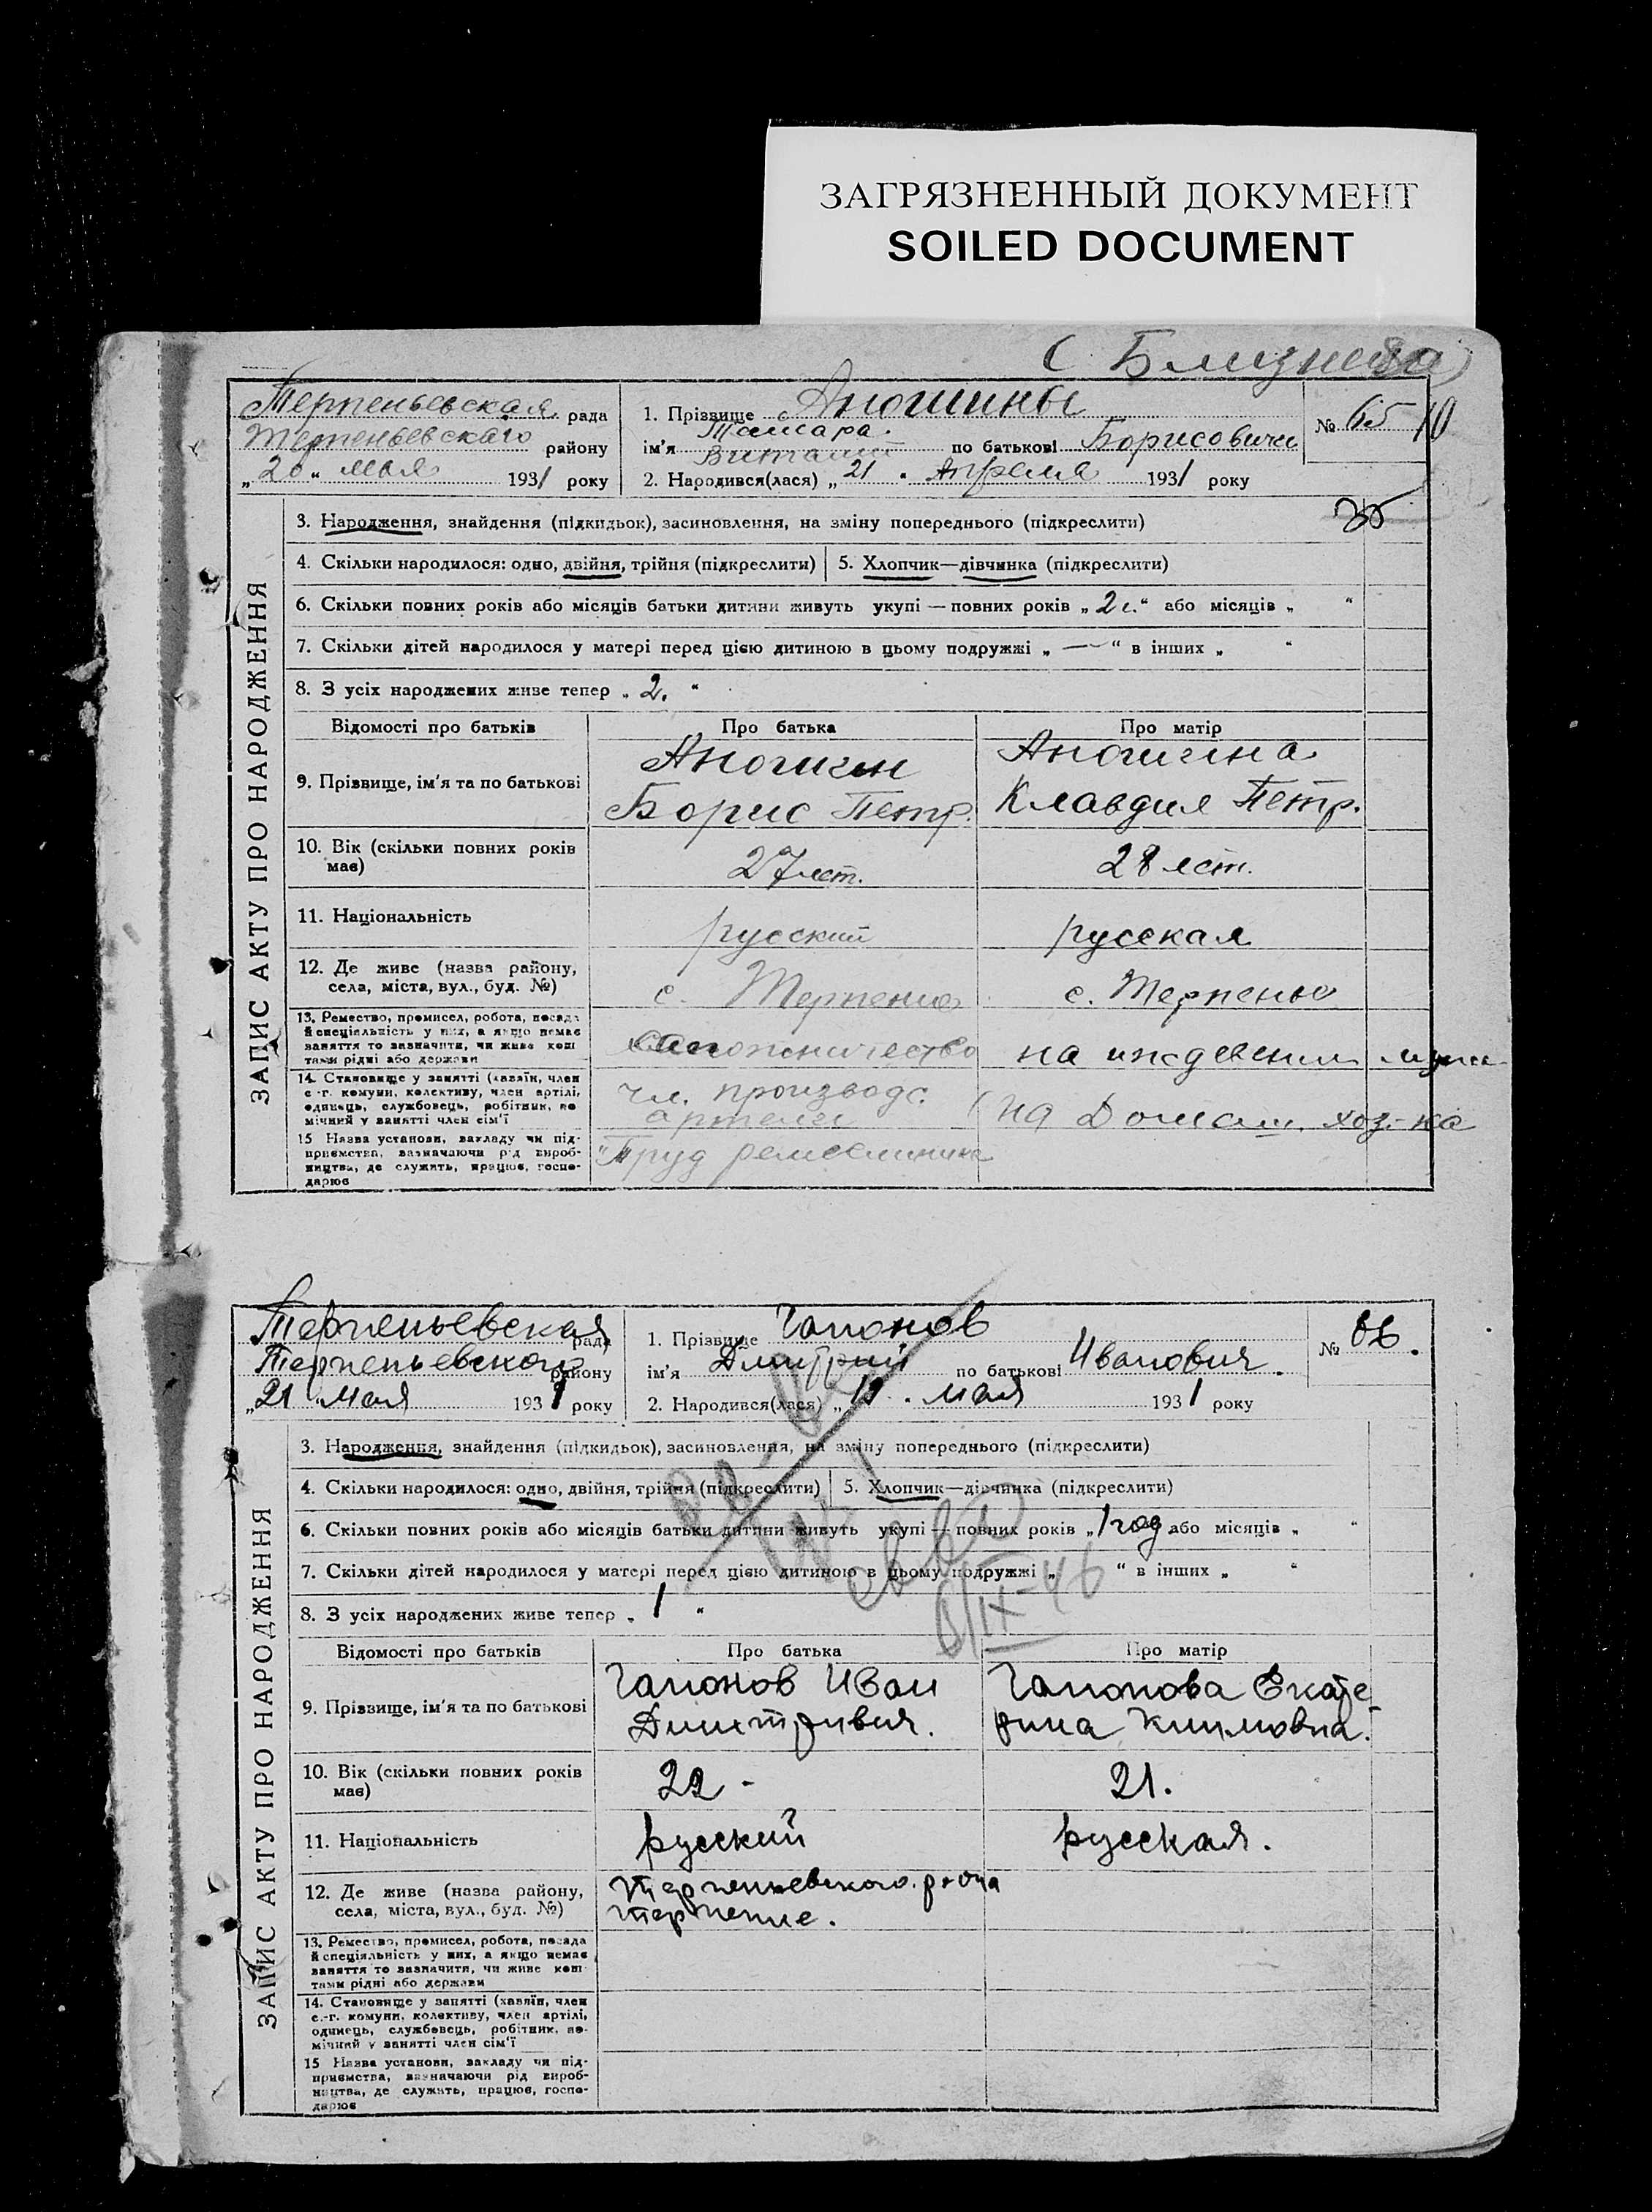 ЗАГРЯЗНЕННЫЙ ДОКУМЕНТ
SOILED DOCUMENT
( Близнецы )
ЗАПИС АКТУ ПРО НАРОДЖЕННЯ
Терпеньевская рада
Терпеньевскаго району
„20“ мая 1931 року
1. Прізвище Аношины
ім'я Тамара. Виталий по батькові Борисовичи
2. Народився(лася) „21“ Апреля 1931 року
№ 65
3. Народження, знайдення (підкидьок), засиновлення, на зміну попереднього (підкреслити)
4. Скільки народилося: одно, двійня, трійня (підкреслити) 5. Хлопчик—дівчинка (підкреслити)
6. Скільки повних років або місяців батьки дитини живуть укупі — повних років „2 г.“ або місяців „ “
7. Скільки дітей народилося у матері перед цією дитиною в цьому подружжі „ — “ в інших „ “
8. З усіх народжених живе тепер „2.“
Відомості про батьків Про батька Про матір
9. Прізвище, ім'я та по батькові Аношин Борис Петр. Аношина Клавдия Петр.
10. Вік (скільки повних років має) 27 лет. 28 лет.
11. Національність русский русская
12. Де живе (назва району, села, міста, вул., буд. №) с. Терпение с. Терпенье
13. Ремество, промисел, робота, посада й спеціяльність у них, а якщо немає заняття то зазначити, чи живе коштами рідні або держави сапожничество на иждевении мужа
14. Становище у занятті (хазяїн, член с.-г. комуни, колективу, член артілі, одинець, службовець, робітник, помічний у занятті член сім'ї чл. производс. артели на Домаш. хоз-ка
15 Назва установи, закладу чи підприємства, зазначаючи рід виробництва, де служить, працює, господарює "Труд ремесленника
ЗАПИС АКТУ ПРО НАРОДЖЕННЯ
Терпеньевская рада
Терпеньевского району
„21“ мая 1931 року
1. Прізвище Гапонов
ім'я Дмитрий по батькові Иванович.
2. Народився(лася) мая 1931 року
№ 66.
3. Народження, знайдення (підкидьок), засиновлення, на зміну попереднього (підкреслити)
4. Скільки народилося: одно, двійня, трійня (підкреслити) 5. Хлопчик—дівчинка (підкреслити)
6. Скільки повних років або місяців батьки дитини живуть укупі — повних років „1 год або місяців „ “
7. Скільки дітей народилося у матері перед цією дитиною в цьому подружжі „ “ в інших „ “
8. З усіх народжених живе тепер „1“
6/IX-46
Відомості про батьків Про батька Про матір
9. Прізвище, ім'я та по батькові Гапонов Иван Дмитривич. Гапонова Екатерина Климовна.
10. Вік (скільки повних років має) 22 - 21.
11. Національність русский русская.
12. Де живе (назва району, села, міста, вул., буд. №) Терпеньевского р-она терпение.
13. Ремество, промисел, робота, посада й спеціяльність у них, а якщо немає заняття то зазначити, чи живе коштами рідні або держави
14. Становище у занятті (хазяїн, член с.-г. комуни, колективу, член артілі, одинець, службовець, робітник, помічний у занятті член сім'ї
15 Назва установи, закладу чи підприємства, зазначаючи рід виробництва, де служить, працює, господарює